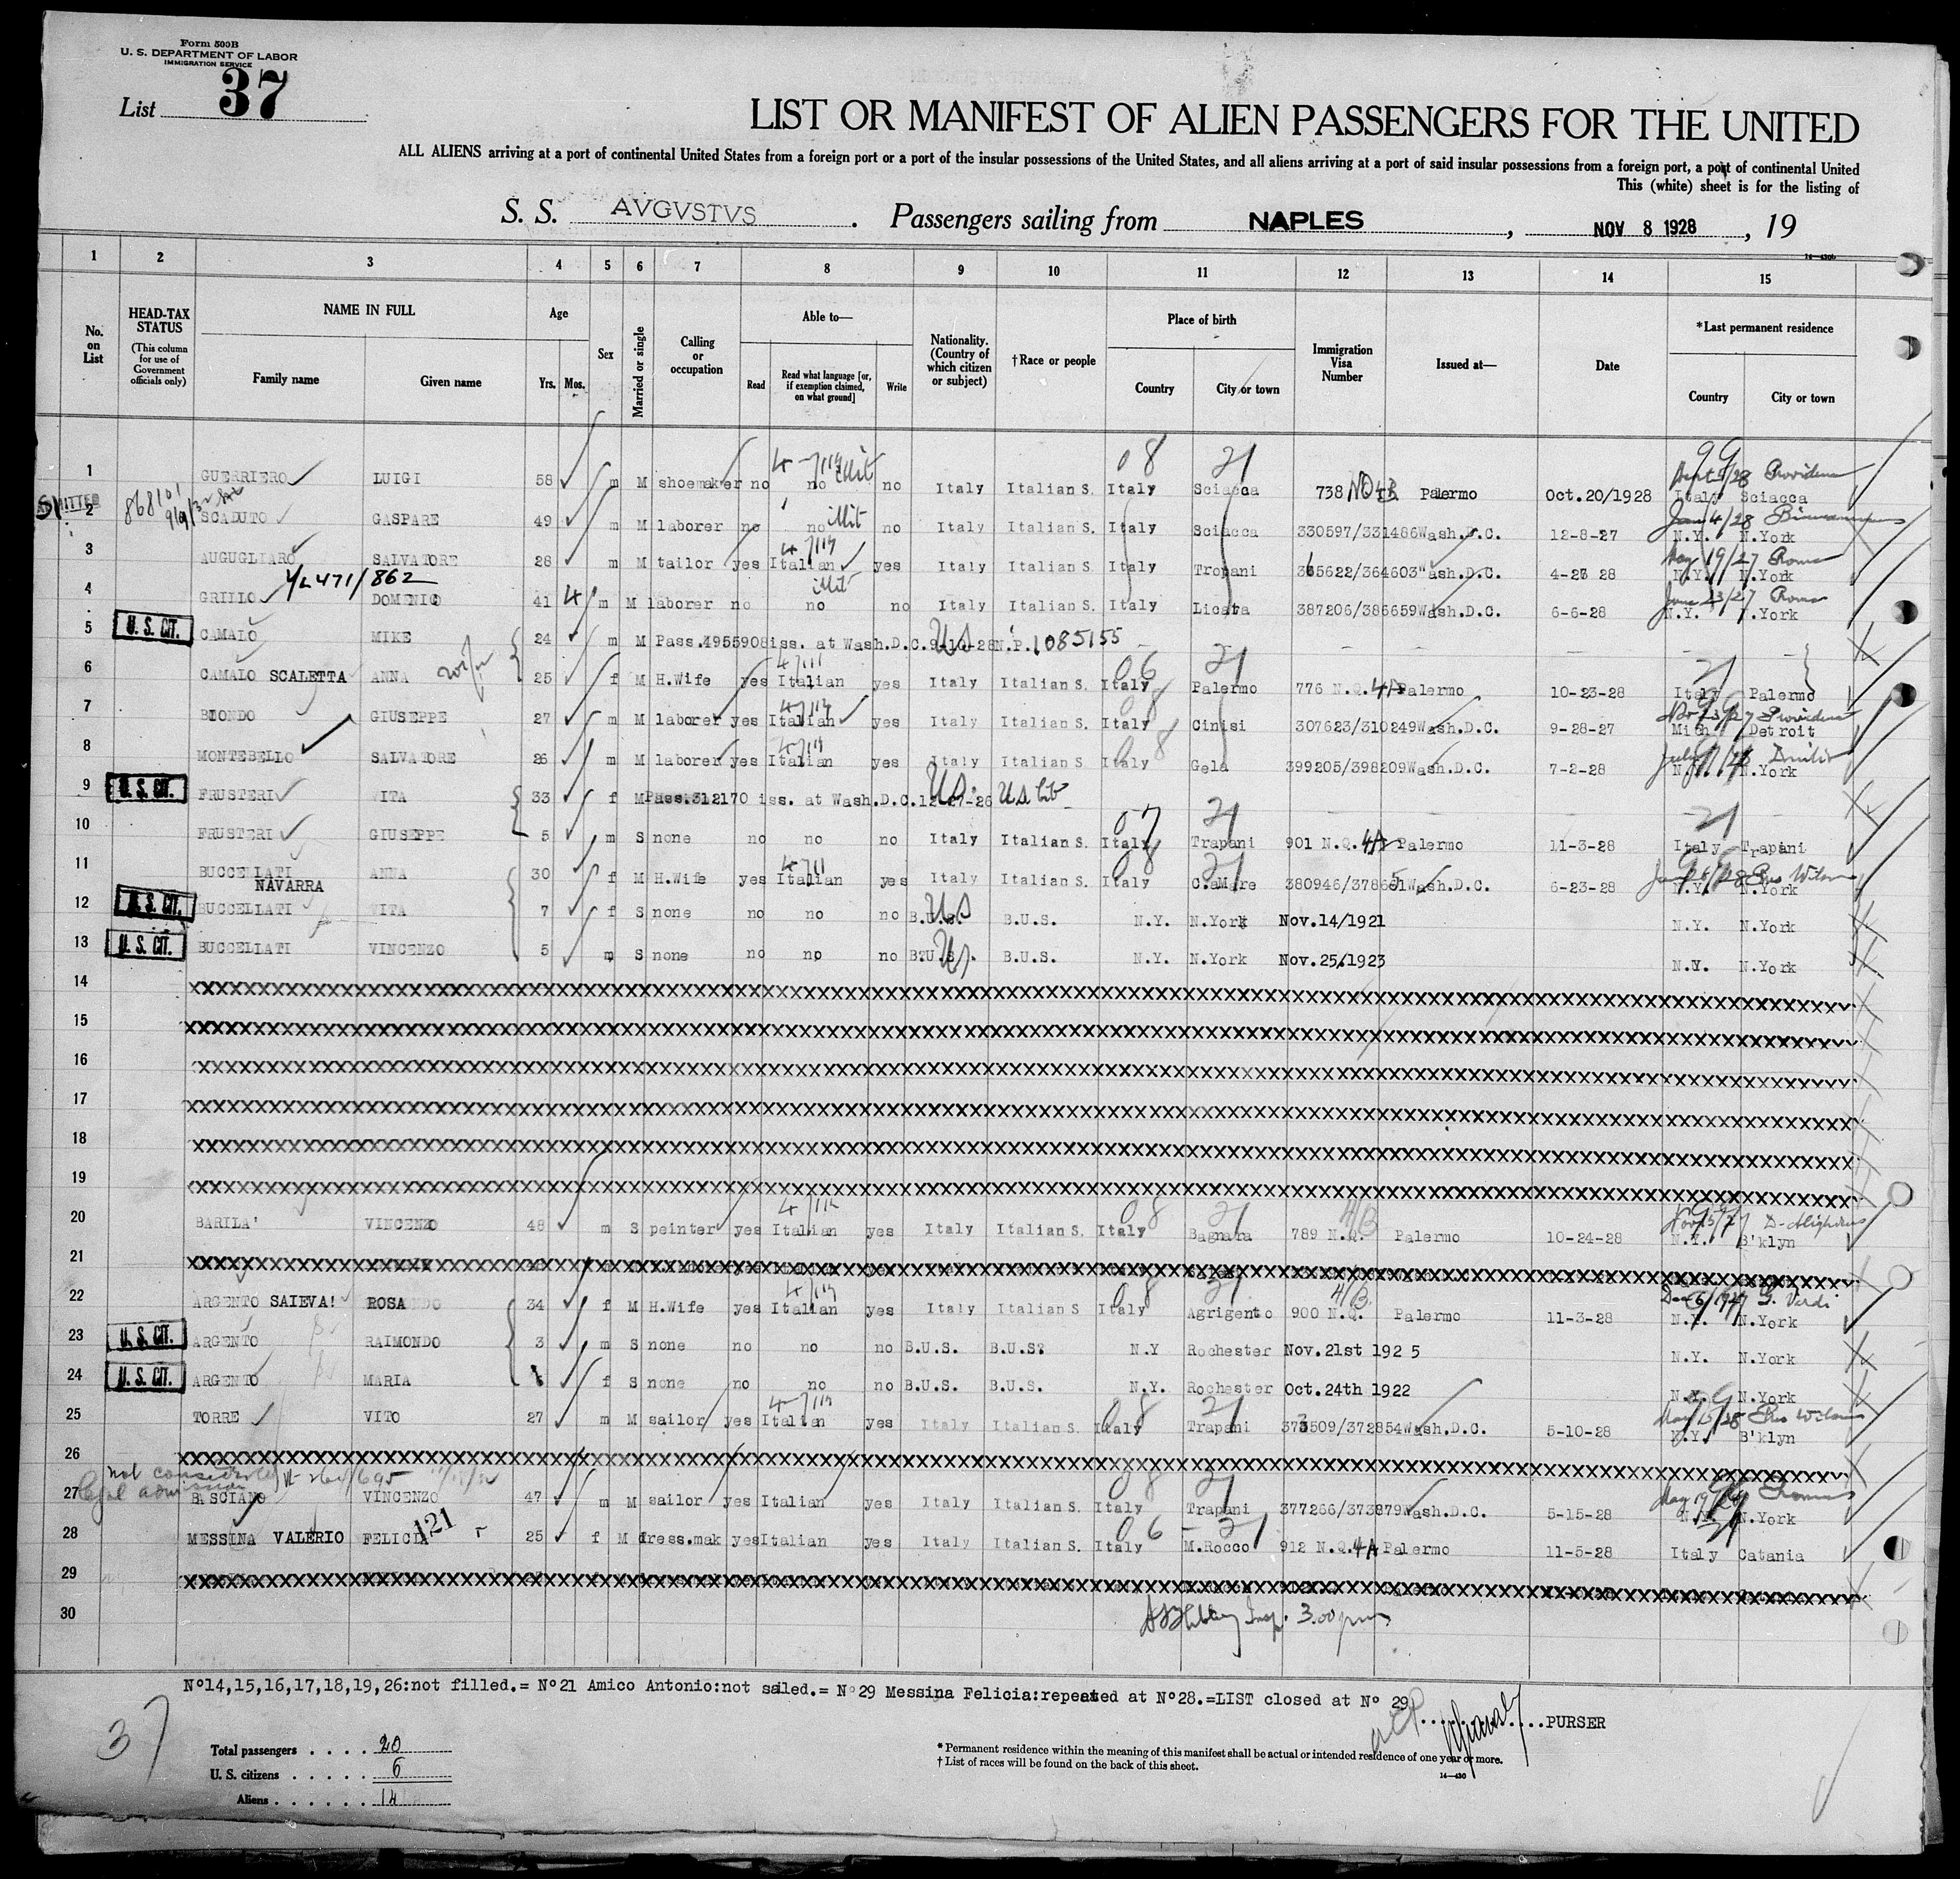 Form 500B
U. S. DEPARTMENT OF LABOR
IMMIGRATION SERVICE
List 37
LIST OR MANIFEST OF ALIEN PASSENGERS FOR THE UNITED
ALL ALIENS arriving at a port of continental United States from a foreign port or a port of the insular possessions of the United States, and all aliens arriving at a port of said insular possessions from a foreign port, a port of continental United
This (white) sheet is for the listing of
S. S. AVGVSTVS . Passengers sailing from NAPLES , NOV 8 1928 , 19
1 2 3 4 5 6 7 8 9 10 11 12 13 14 15
No. on List
HEAD-TAX STATUS (This column for use of Government officials only)
NAME IN FULL Family name Given name
Age Yrs. Mos.
Sex
Married or single
Calling or occupation
Able to— Read Read what language [or, if exemption claimed, on what ground] Write
Nationality. (Country of which citizen or subject)
†Race or people
Place of birth Country City or town
Immigration Visa Number
Issued at—
Date
*Last permanent residence Country City or town
1 GUERRIERO LUIGI 58 m M shoemaker no no no Italy Italian S. Italy Sciacca 738 Palermo Oct.20/1928 Italy Sciacca
2 SCADUTO GASPARE 49 m M laborer no no illit no Italy Italian S. Italy Sciacca 330597/331486 Wash.D.C. 12-8-27 N.Y. N.York
3 AUGUGLIARO SALVATORE 28 m M tailor yes Italian yes Italy Italian S. Italy Tropani 365622/364603 Wash.D.C. 4-26 28 N.Y. N.York
4 GRILLO DOMENICO 41 m M laborer no no illit no Italy Italian S. Italy Licata 387206/386659 Wash.D.C. 6-6-28 N.Y. N.York
5 U. S. CIT. CAMALO MIKE 24 m M Pass.495590 8 iss. at Wash.D.C. 9-10-28 N.P. 1085155
6 CAMALO SCALETTA ANNA wife 25 f M H.Wife yes Italian yes Italy Italian S. Italy Palermo 776 N.Q. 4A Palermo 10-23-28 Italy Palermo
7 BIONDO GIUSEPPE 27 m M laborer yes Italian yes Italy Italian S. Italy Cinisi 307623/310249 Wash.D.C. 9-28-27 Mich Detroit
8 MONTEBELLO SALVATORE 26 m M laborer yes Italian yes Italy Italian S Italy Gela 399205/398209 Wash.D.C. 7-2-28 N.Y. N.York
9 U. S. CIT. FRUSTERI VITA 33 f M Pass.312170 iss. at Wash.D.C. 12-27-26 U.S. Cit
10 FRUSTERI GIUSEPPE 5 m S none no no no Italy Italian S. Italy Trapani 901 N.Q. 4A Palermo 11-3-28 Italy Trapani
11 BUCCELLATI NAVARRA ANNA 30 f M H.Wife yes Italian yes Italy Italian S. Italy C.aMare 380946/378651 Wash.D.C. 6-23-28 N.Y. N.York
12 U. S. CIT. BUCCELLATI VITA 7 f S none no no no B.U.S. B.U.S. N.Y. N.York Nov.14/1921 N.Y. N.York
13 U. S. CIT. BUCCELLATI VINCENZO 5 m S none no no no B.U.S. B.U.S. N.Y. N.York Nov.25/1923 N.Y. N.York
14
15
16
17
18
19
20 BARILA' VINCENZO 48 m S peinter yes Italian yes Italy Italian S. Italy Bagnara 789 N.Q. 4B Palermo 10-24-28 N.Y. B'klyn
21
22 ARGENTO SAIEVA! ROSA 34 f M H.Wife yes Italian yes Italy Italian S Italy Agrigento 900 N.Q. 4B Palermo 11-3-28 N.Y. N.York
23 U. S. CIT. ARGENTO RAIMONDO 3 m S none no no no B.U.S. B.U.S? N.Y Rochester Nov.21st 192 5 N.Y. N.York
24 U. S. CIT. ARGENTO MARIA f S none no no no B.U.S. B.U.S. N.Y. Rochester Oct.24th 1922 N.Y. N.York
25 TORRE VITO 27 m M sailor yes Italian yes Italy Italian S. Italy Trapani 373509/372854 Wash.D.C. 5-10-28 N.Y. B'klyn
26
not considered legal admission
27 BASCIANO VINCENZO 47 m M sailor yes Italian yes Italy Italian S. Italy Trapani 377266/373879 Wash.D.C. 5-15-28 N.Y. N.York
28 MESSINA VALERIO FELICIA 121 25 f M dress.mak yes Italian yes Italy Italian S. Italy M.Rocco 912 N.Q. 4A Palermo 11-5-28 Italy Catania
29
30
Insp. 3.00 pm
Nº14,15,16,17,18,19,26:not filled.= Nº21 Amico Antonio:not sailed.= Nº29 Messina Felicia:repeated at Nº28.=LIST closed at Nº 29
PURSER
37
Total passengers . . . . 20
U. S. citizens . . . . . 6
Aliens . . . . . . 14
* Permanent residence within the meaning of this manifest shall be actual or intended residence of one year or more.
† List of races will be found on the back of this sheet.
14—430